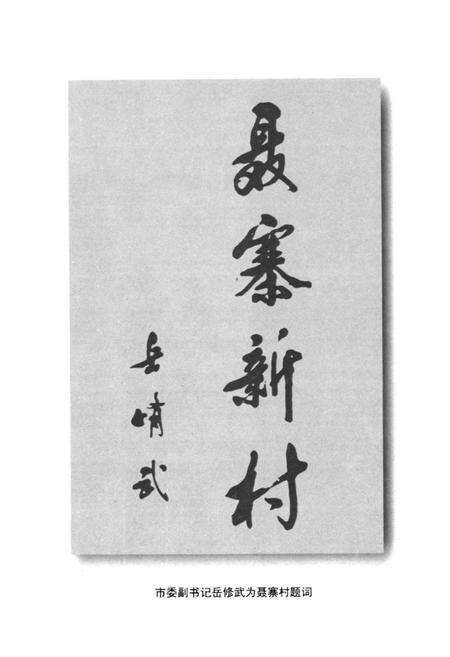 聂寨新村
岳修武
市委副书记岳修武为聂寨村题词